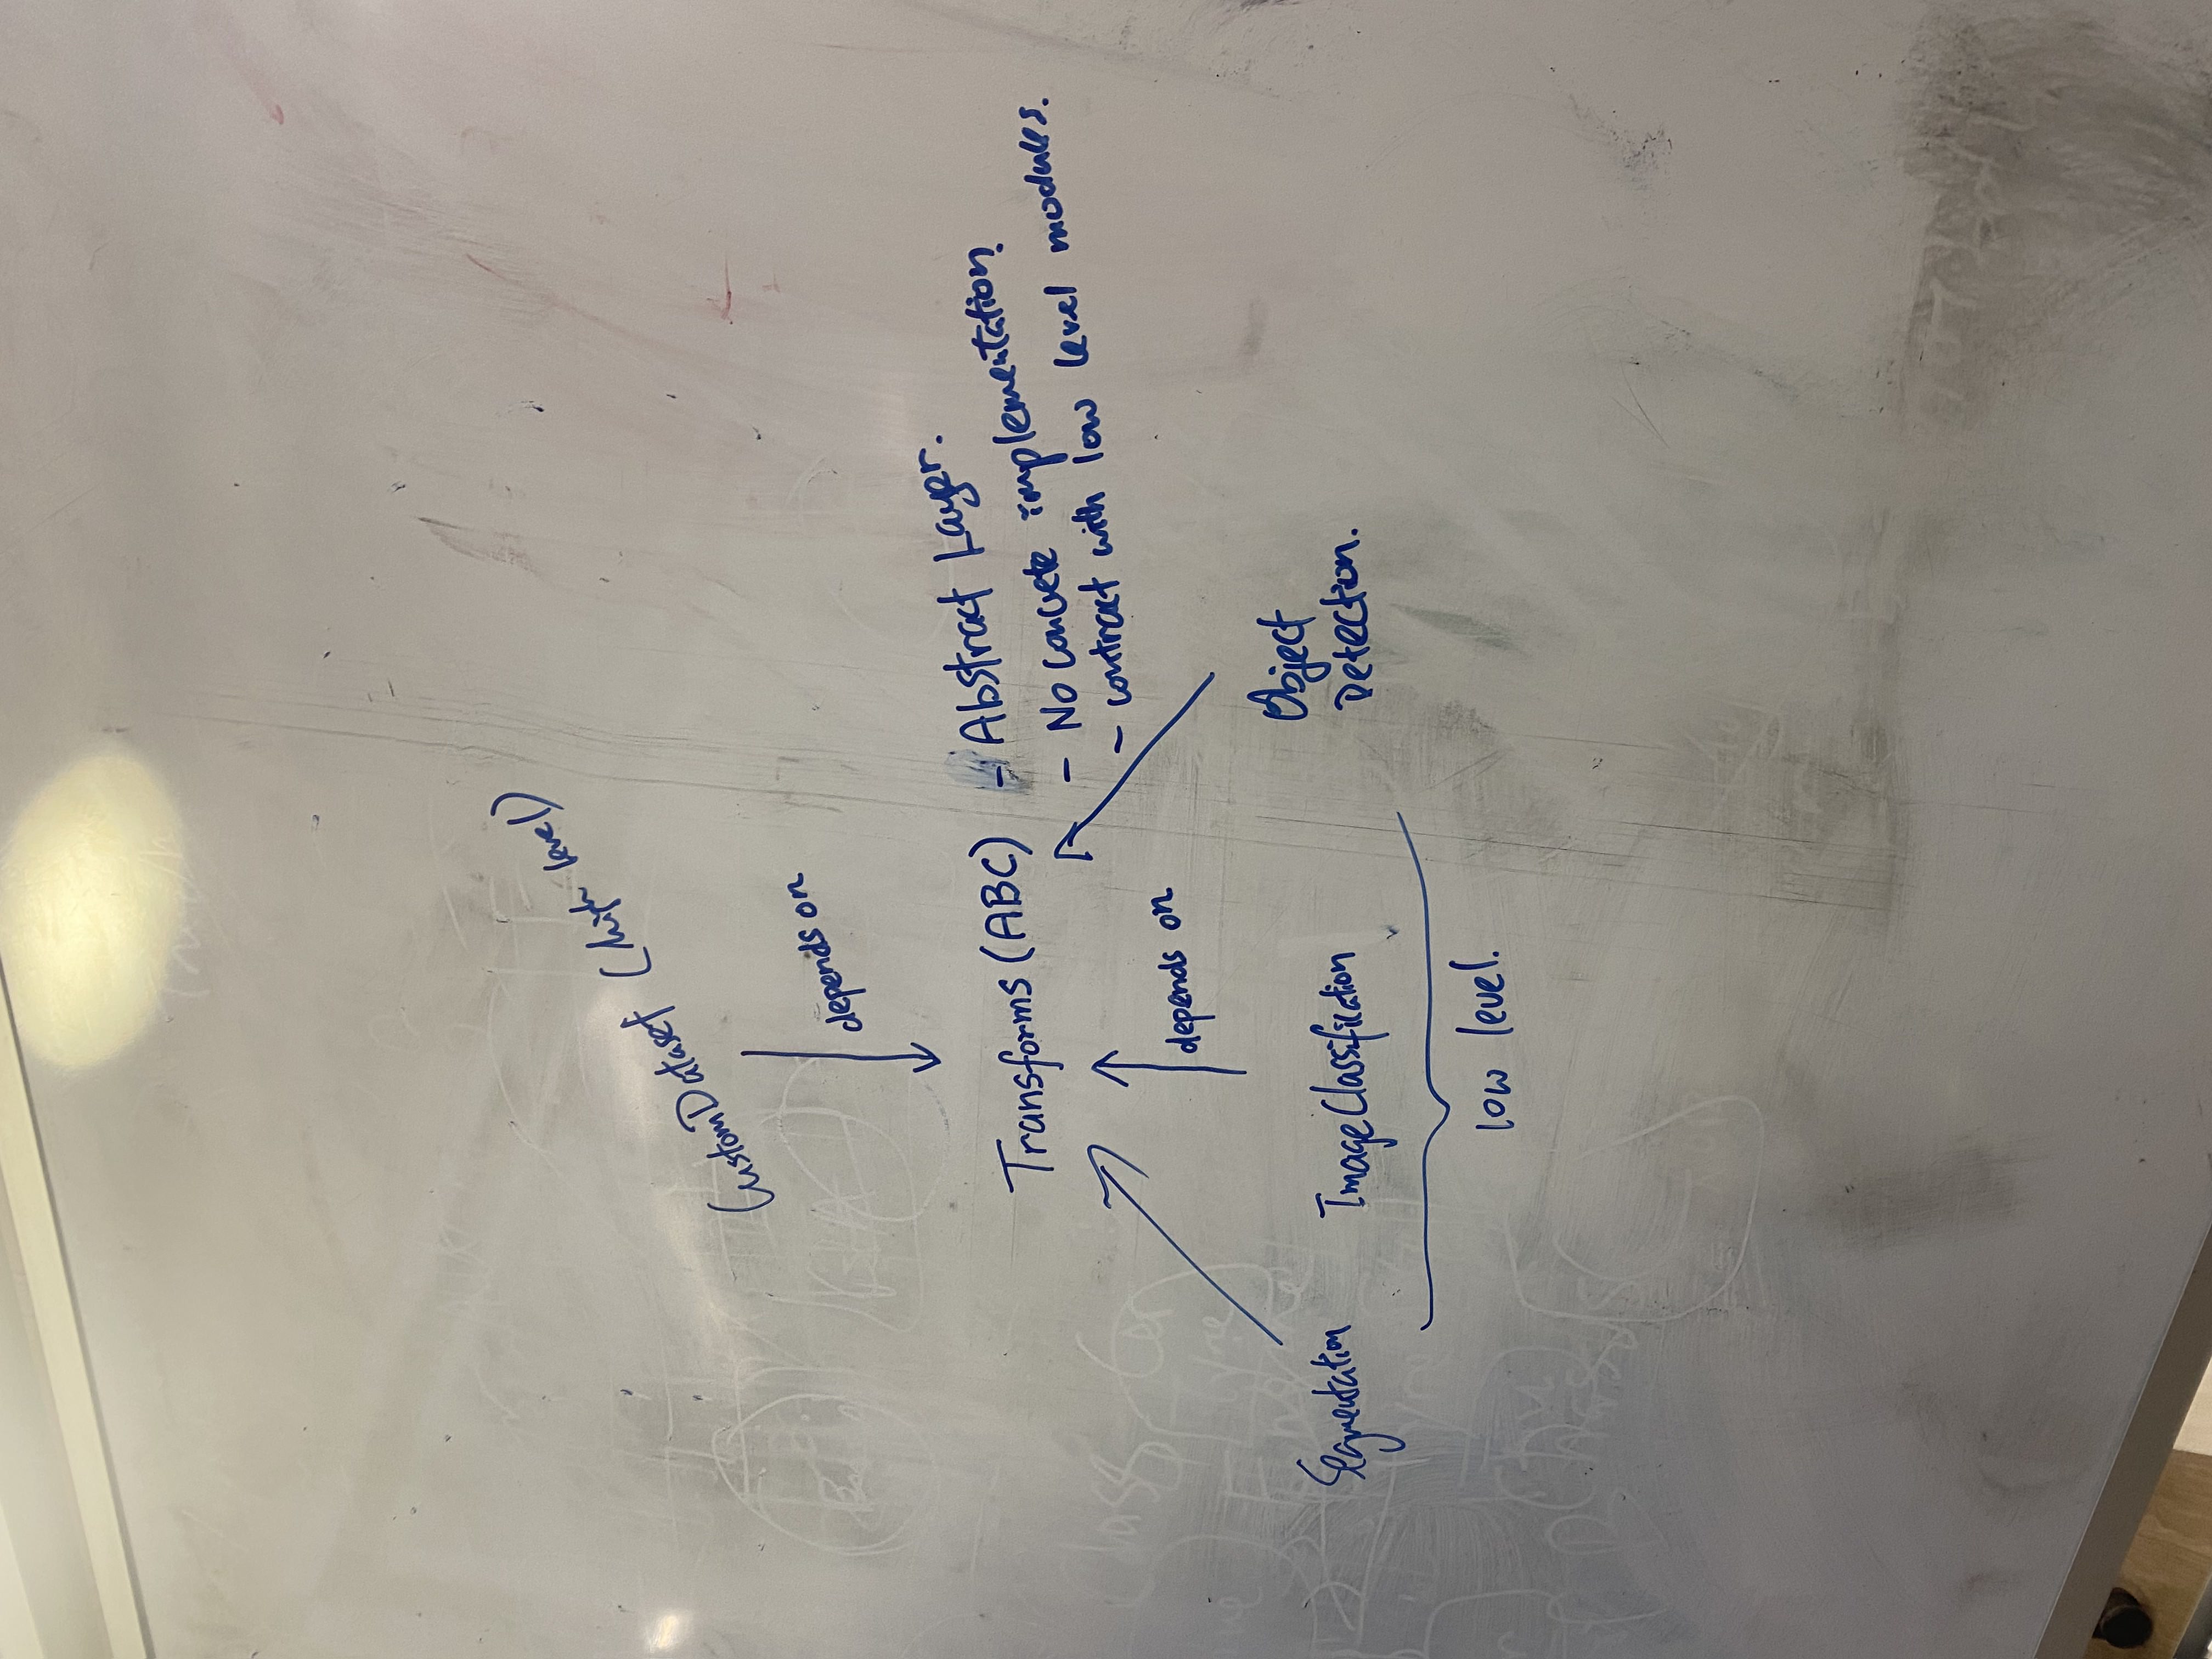 CustomDataset (high level)
depends on
Transforms (ABC)
- Abstract Layer.
- No concrete implementation.
- contract with low level modules.
depends on
Segmentation
ImageClassification
Object
Detection.
low level.